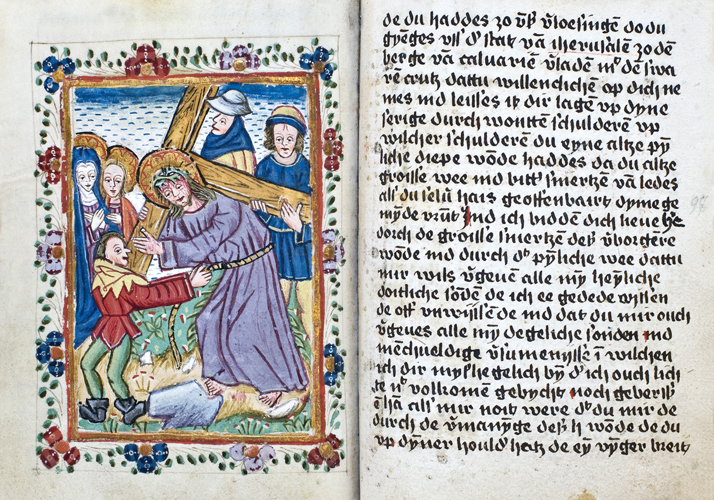 de du haddes zo vñß v̄loesingē do du
gyēges vß d' stat vā iherusalē zo dē
berge vā caluariē v̄ladē mᵗ dē swa
rē crutz dattu willenclichē op dich ne
mes ind leisses it dir lagē vp dyne
serige durch wontē schulderē vp
wilcher schulderē du eyne altze pȳ
liche diepe wōde haddes da du altze
groisse wee ind bitt' smertzē vā ledes
als du selu hais geoffenbairt dyme ge
myde vrūt Ind ich biddē dich lieue h'e
dorch de groisse smertzē deß v̄borgēre
wōde ind durch dᵉ pȳliche wee dattu
mir wils v̄geuē alle mȳ heȳliche
doitliche sōdē de ich ee gedede wissen
de off vnwissē de ind dat du mir ouch
v̄geues alle mȳ degeliche sonden ind
mēchueldige v̄sumenisse ī wilchen
ich dir myshegelich bȳ d' ich ouch lich
te nᵗ volkomen gebycht noch gebers
ē hā als mir noit were dᵗ du mir de
durch de v̄manyge deß h wōde de du
vp dyner hould' hatz de eȳ v̄yger breit
97